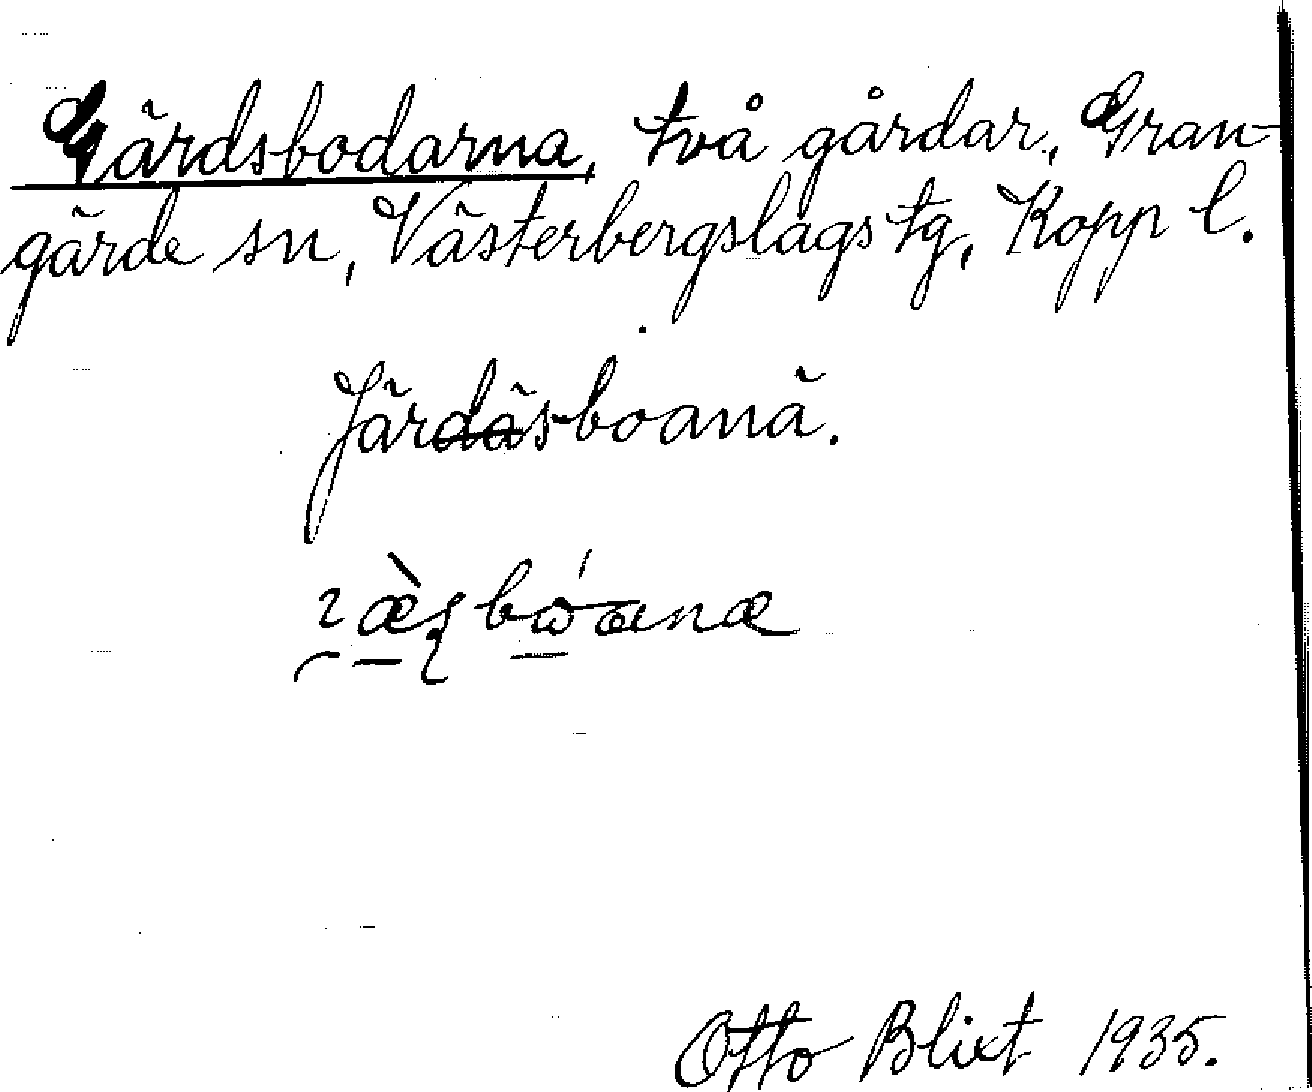 Gärdsbodarna, två gårdar, Gran-
gärde sn, Västerbergslags tg, Kopp l.
Järdäsboanä.
Otto Blixt 1935.